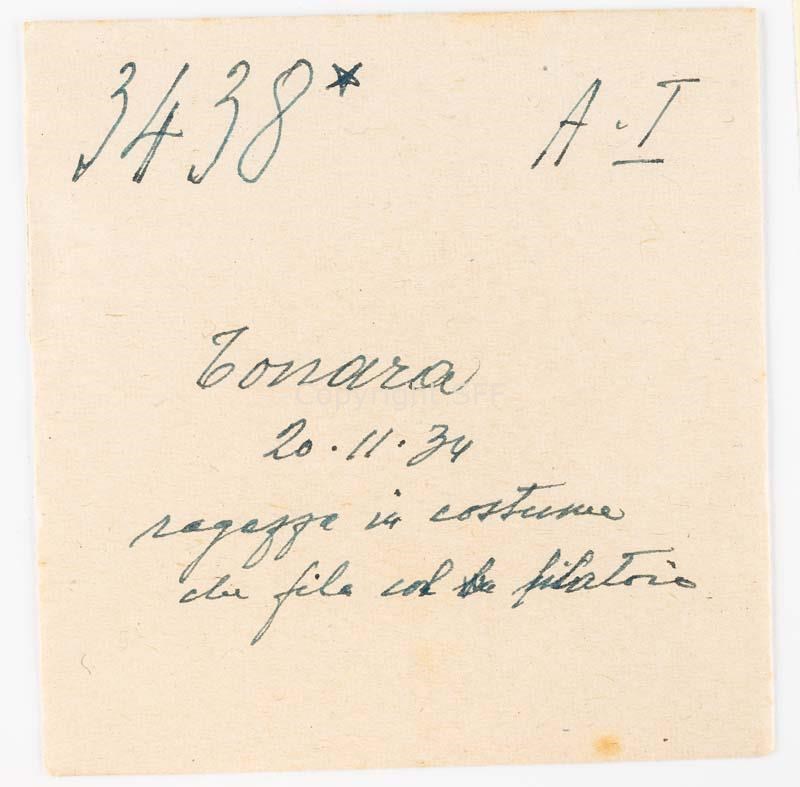 3438* A.I
Tonara
20.11.34
ragazza in costume
che fila col filatoio
Copyright SFF